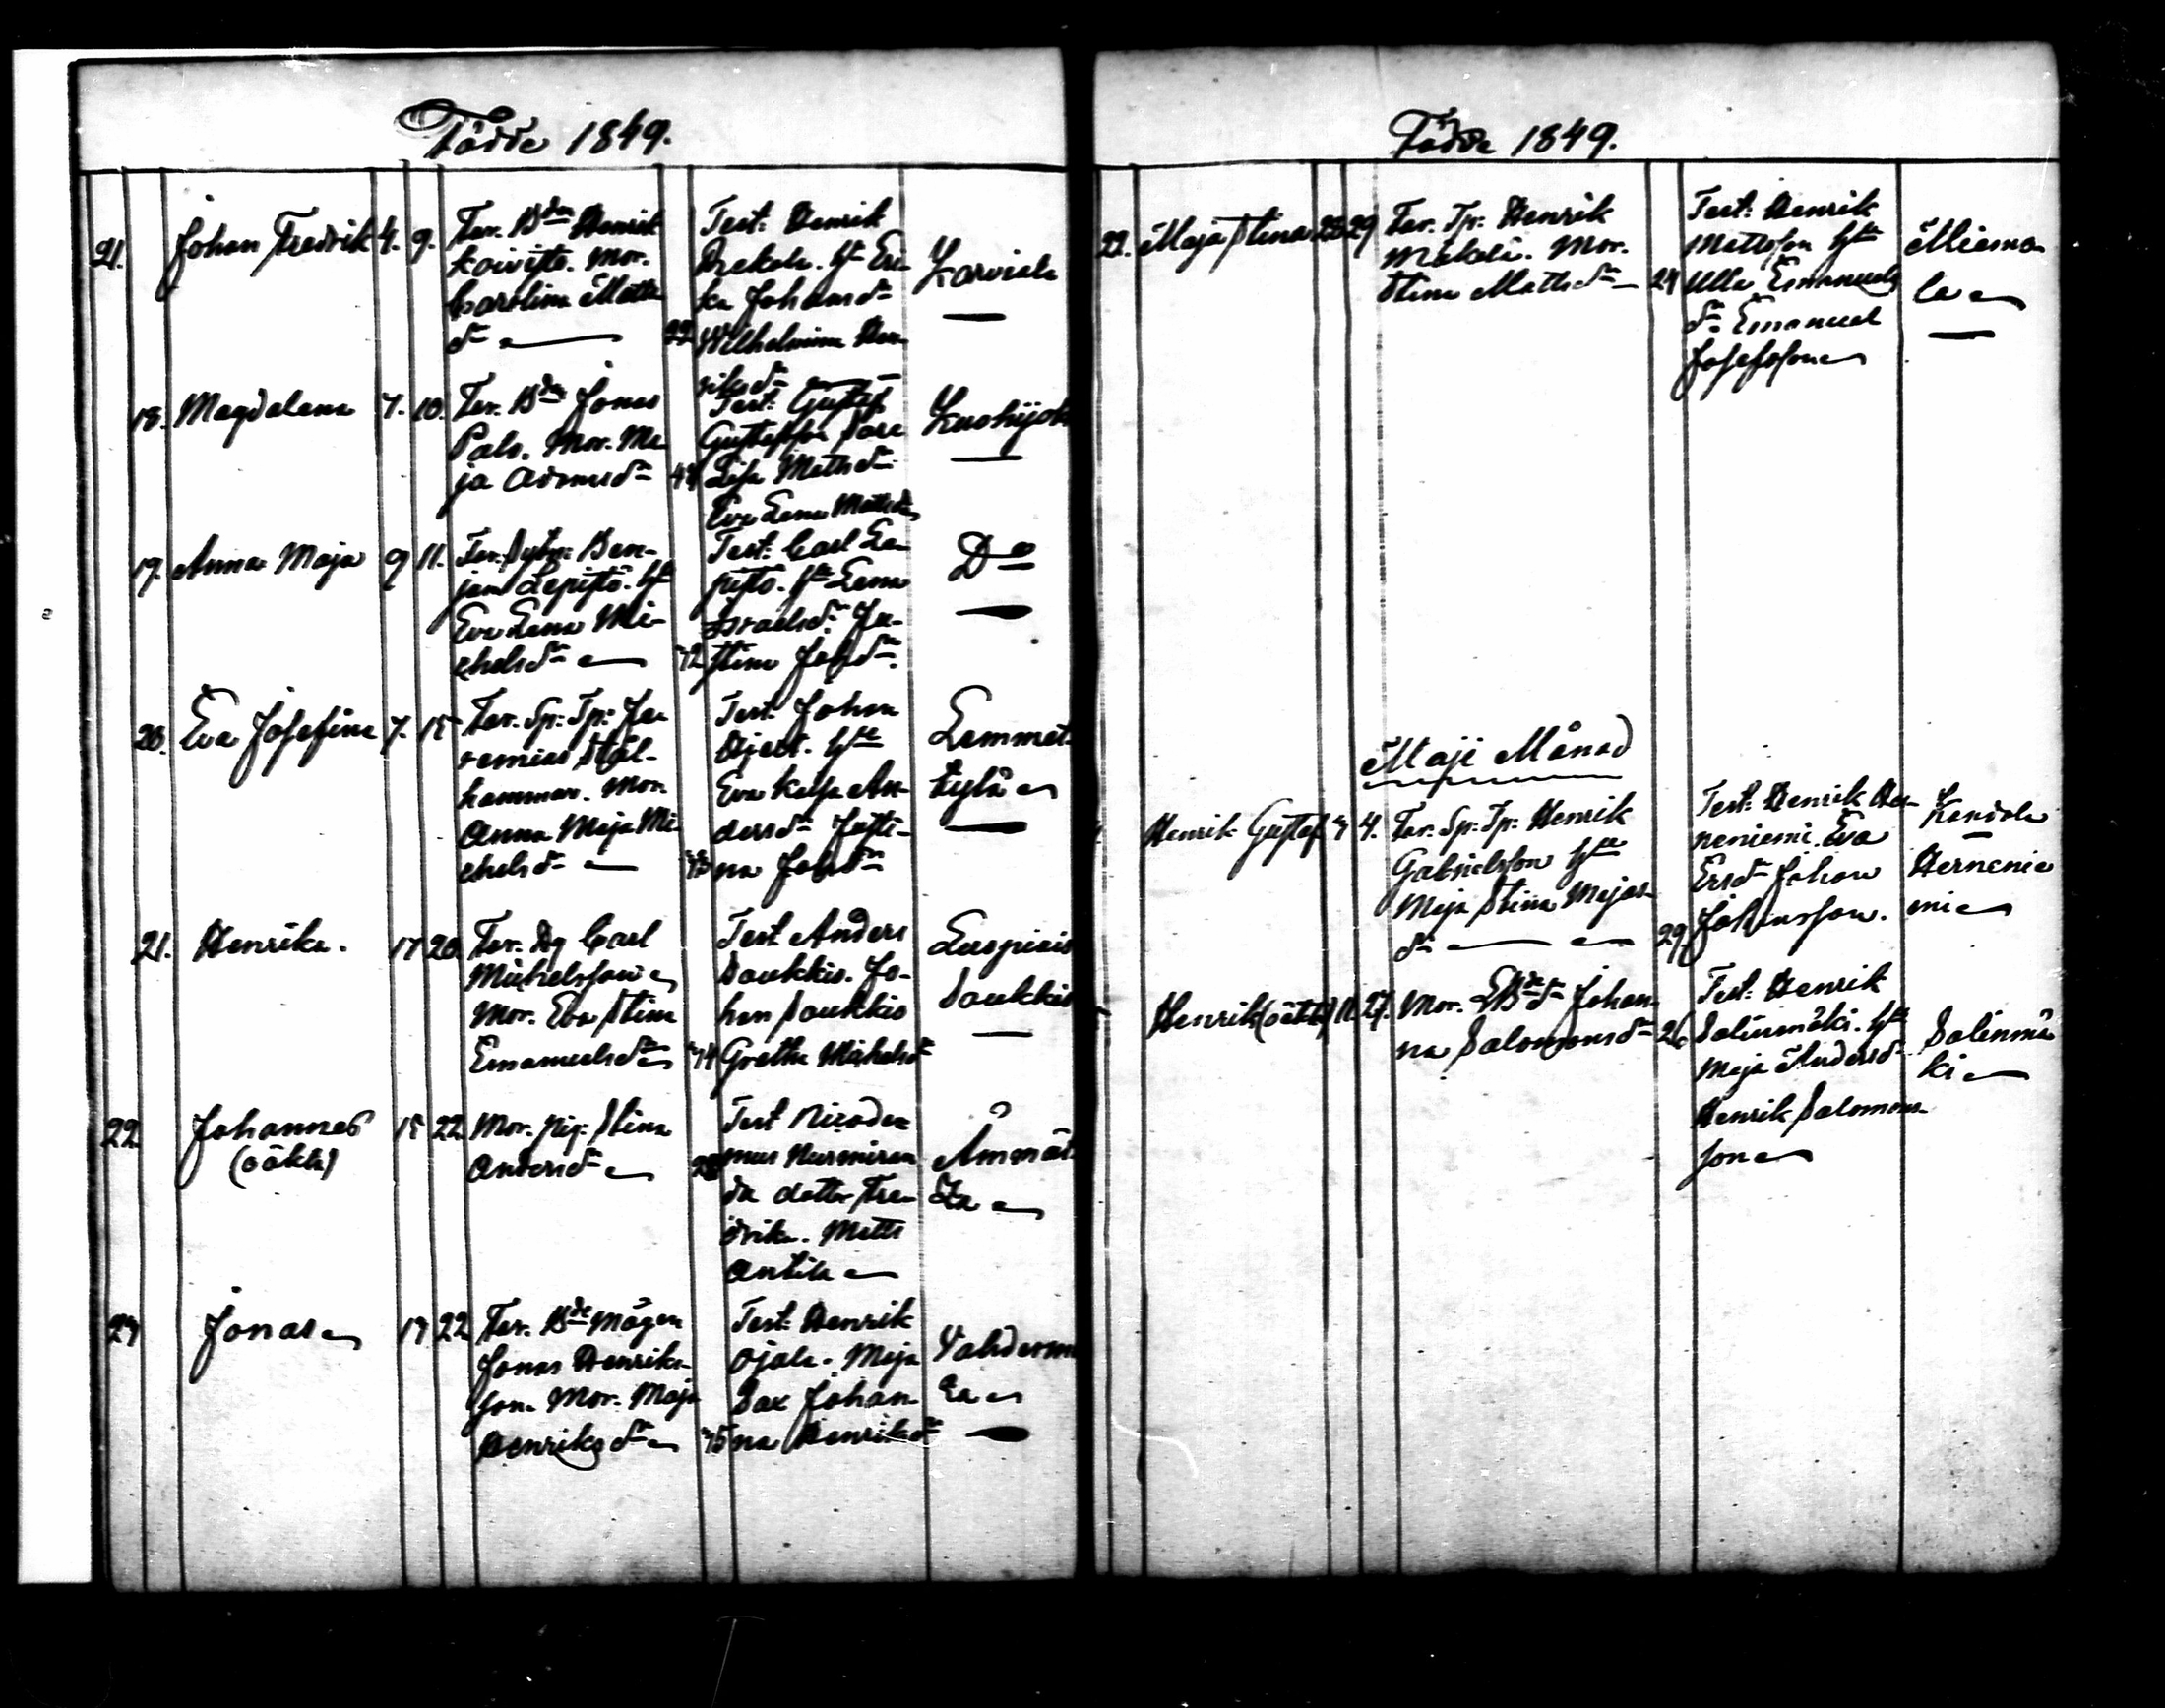 Födde 1849.
21. Johan Fredrik 4. 9. Far. Bdn Henrik
Koivisto. Mor.
Carolina Matts
dr 22
Test: Henrik
Hr Eri
ka Johansdr
Wilhelmina Hen
riksdr
Karviala
18. Magdalena 7. 10. Far. Bdn Jonas
Palo. Mor. Ma
ja Adamsdr
Test: Gustaf
Gustafsson
Lisa Mattsdr
Eva Lena Mattsdr
Kuohijok
19. Anna Maja 9 11. Far. Ben-
jam Lepistö. Hu
Eva Lena Mi-
chelsdr 42
Test: Carl Le
pistö. Hu Lena
Israelsdr. Ju-
stina Johsdr.
Do
20. Eva Josefina 7. 15 Far. Sp: Tp: Je
remias Stål-
hammar. Mor.
Anna Maja Mi-
chelsdr
Test: Johan
Hjert. Hu
Eva Kajsa An-
dersdr Justi-
na Johsdr
Lemmet
kylä
21. Henrika. 17 20. Far. Dg Carl
Michelsson
Mor. Eva Stina
Emanuelsdr 44
Test Anders
Soukkis. Jo-
han Soukkis
Greta Michelsdr
Laspiais
Soukkis
22 Johannes 15 22 Mor. pig: Stina
(oäkta)
Andersdr
Test Nicode
mus Nurmi
dotter Fre
drika. Matts
Antila
Ämmät
sa
23 Jonas 17 22 Far. Bde Mågen
Jonas Henriks
son. Mor. Maja
Henriksdr 45
Test: Henrik
Ojala. Maja
Sax Johan
na Henriksdr
Vahderm
Födde 1849.
22. Maja Stina 23 29 Far. Tp: Henrik
Mäkelä. Mor.
Stina Mattsdr 24
Test: Henrik
Mattsson Hu
Ulla Emanuels
dr. Emanuel
Josefsson
Miema
la
Maji Månad
Henrik Gustaf 4. Far. Sp: Tp: Henrik
Gabrielsson Hu
Maja Stina Majas
dr 29
Test: Henrik Her
neniemi. Eva
Ersdr Johan
Johansson.
Kandola
Hernenie
mi
Henrik (oäkta) 11. 27. Mor. Johan-
na Salomonsdr 26
Test: Henrik
Salinmäki. Hu
Maja Andersdr
Henrik Salomons
son
Salinmä
ki